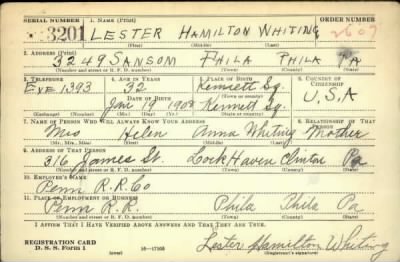 SERIAL NUMBER 1. NAME (Print) ORDER NUMBER
3201 LESTER HAMILTON WHITING 2607
(First) (Middle) (Last)
2. ADDRESS (Print)
3249 SANSOM PHILA PHILA PA
(Number and street or R. F. D. number) (Town) (County) (State)
3. TELEPHONE 4. AGE IN YEARS 5. PLACE OF BIRTH 6. COUNTRY OF CITIZENSHIP
EVE 1393 32 Kennett Sq.
DATE OF BIRTH U.S.A
Jan 19 1908 Kennett Sq.
(Exchange) (Number) (Mo.) (Day) (Yr.) (State or country)
7. NAME OF PERSON WHO WILL ALWAYS KNOW YOUR ADDRESS 8. RELATIONSHIP OF THAT PERSON
Mrs Helen Anna Whiting Mother
(Mr., Mrs., Miss) (First) (Middle) (Last)
9. ADDRESS OF THAT PERSON
316 James St. Lock Haven Clinton Pa
(Number and street or R. F. D. number) (Town) (County) (State)
10. EMPLOYER'S NAME
Penn R.R. Co
11. PLACE OF EMPLOYMENT OR BUSINESS
Penn R.R. Phila Phila Pa
(Number and street or R. F. D. number) (Town) (County) (State)
I AFFIRM THAT I HAVE VERIFIED ABOVE ANSWERS AND THAT THEY ARE TRUE.
REGISTRATION CARD
D. S. S. Form 1 (over) 16—17105 Lester Hamilton Whiting
(Registrant's signature)